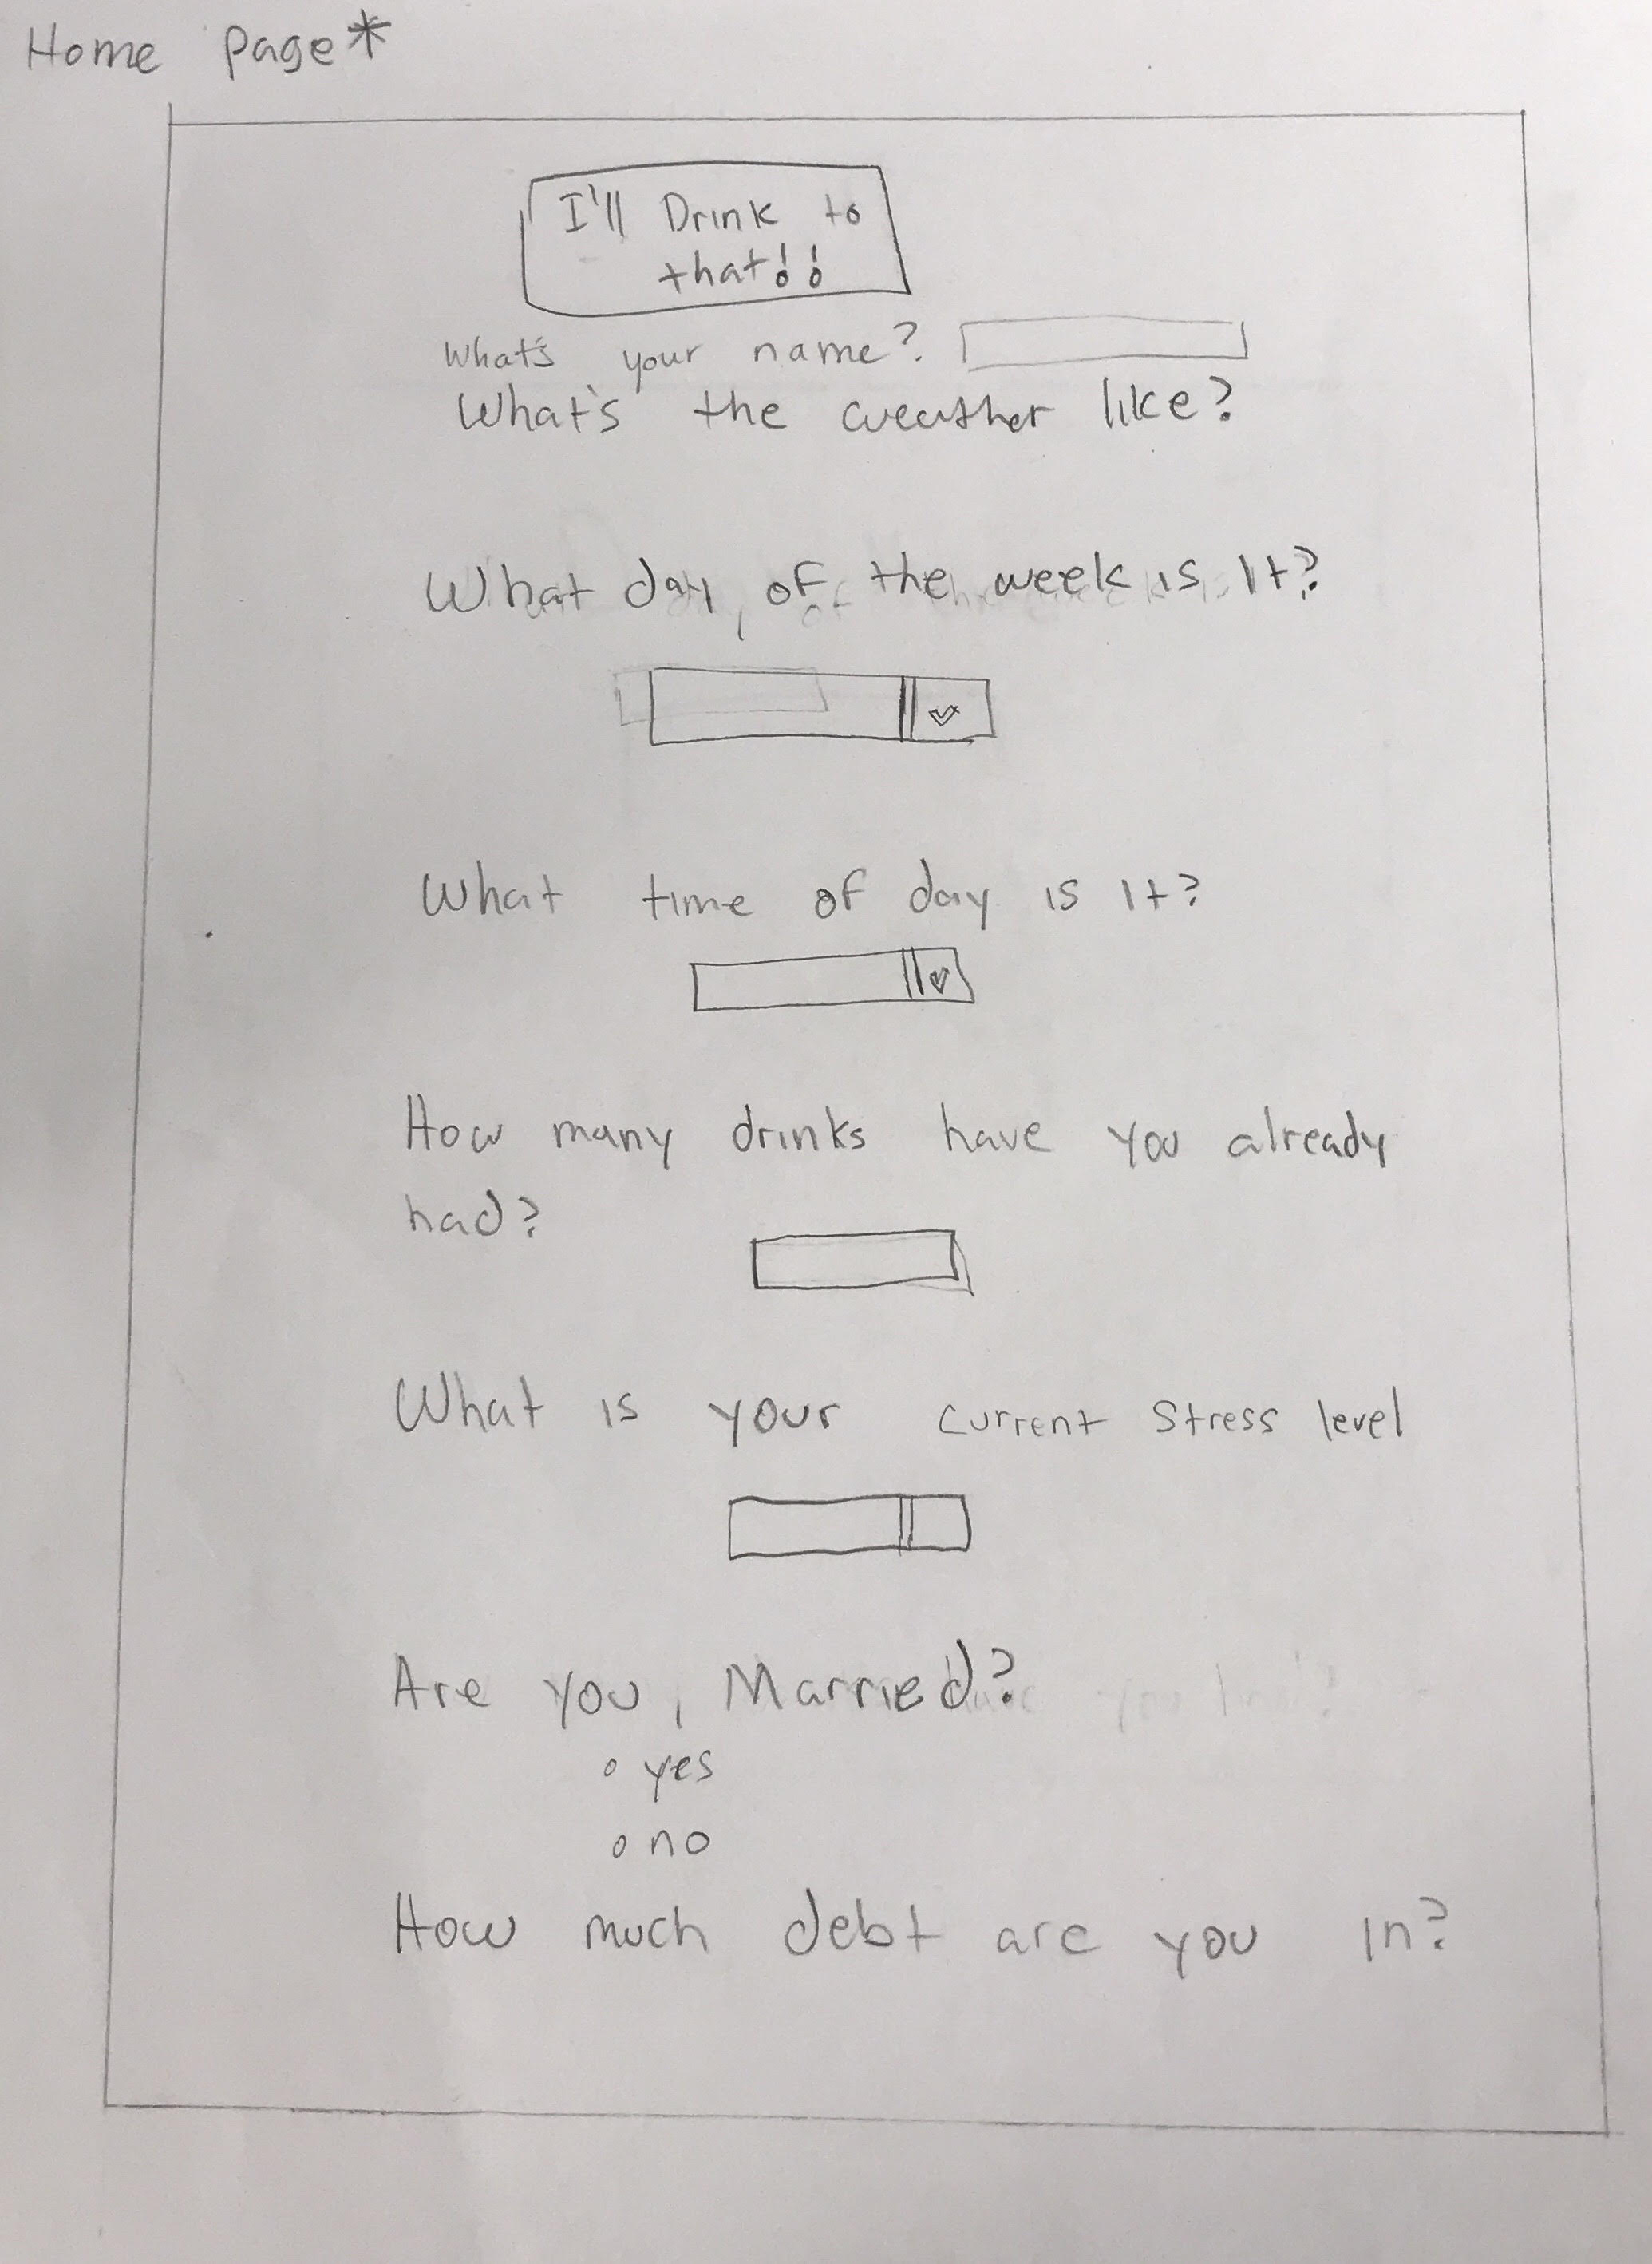 Home Page*
I'll Drink to
that!!
What's your name?
What's the weather like?
What day of the week is It?
What time of day is It?
How many drinks have you already
had?
What is your current stress level
Are you, Married?
yes
no
How much debt are you in?